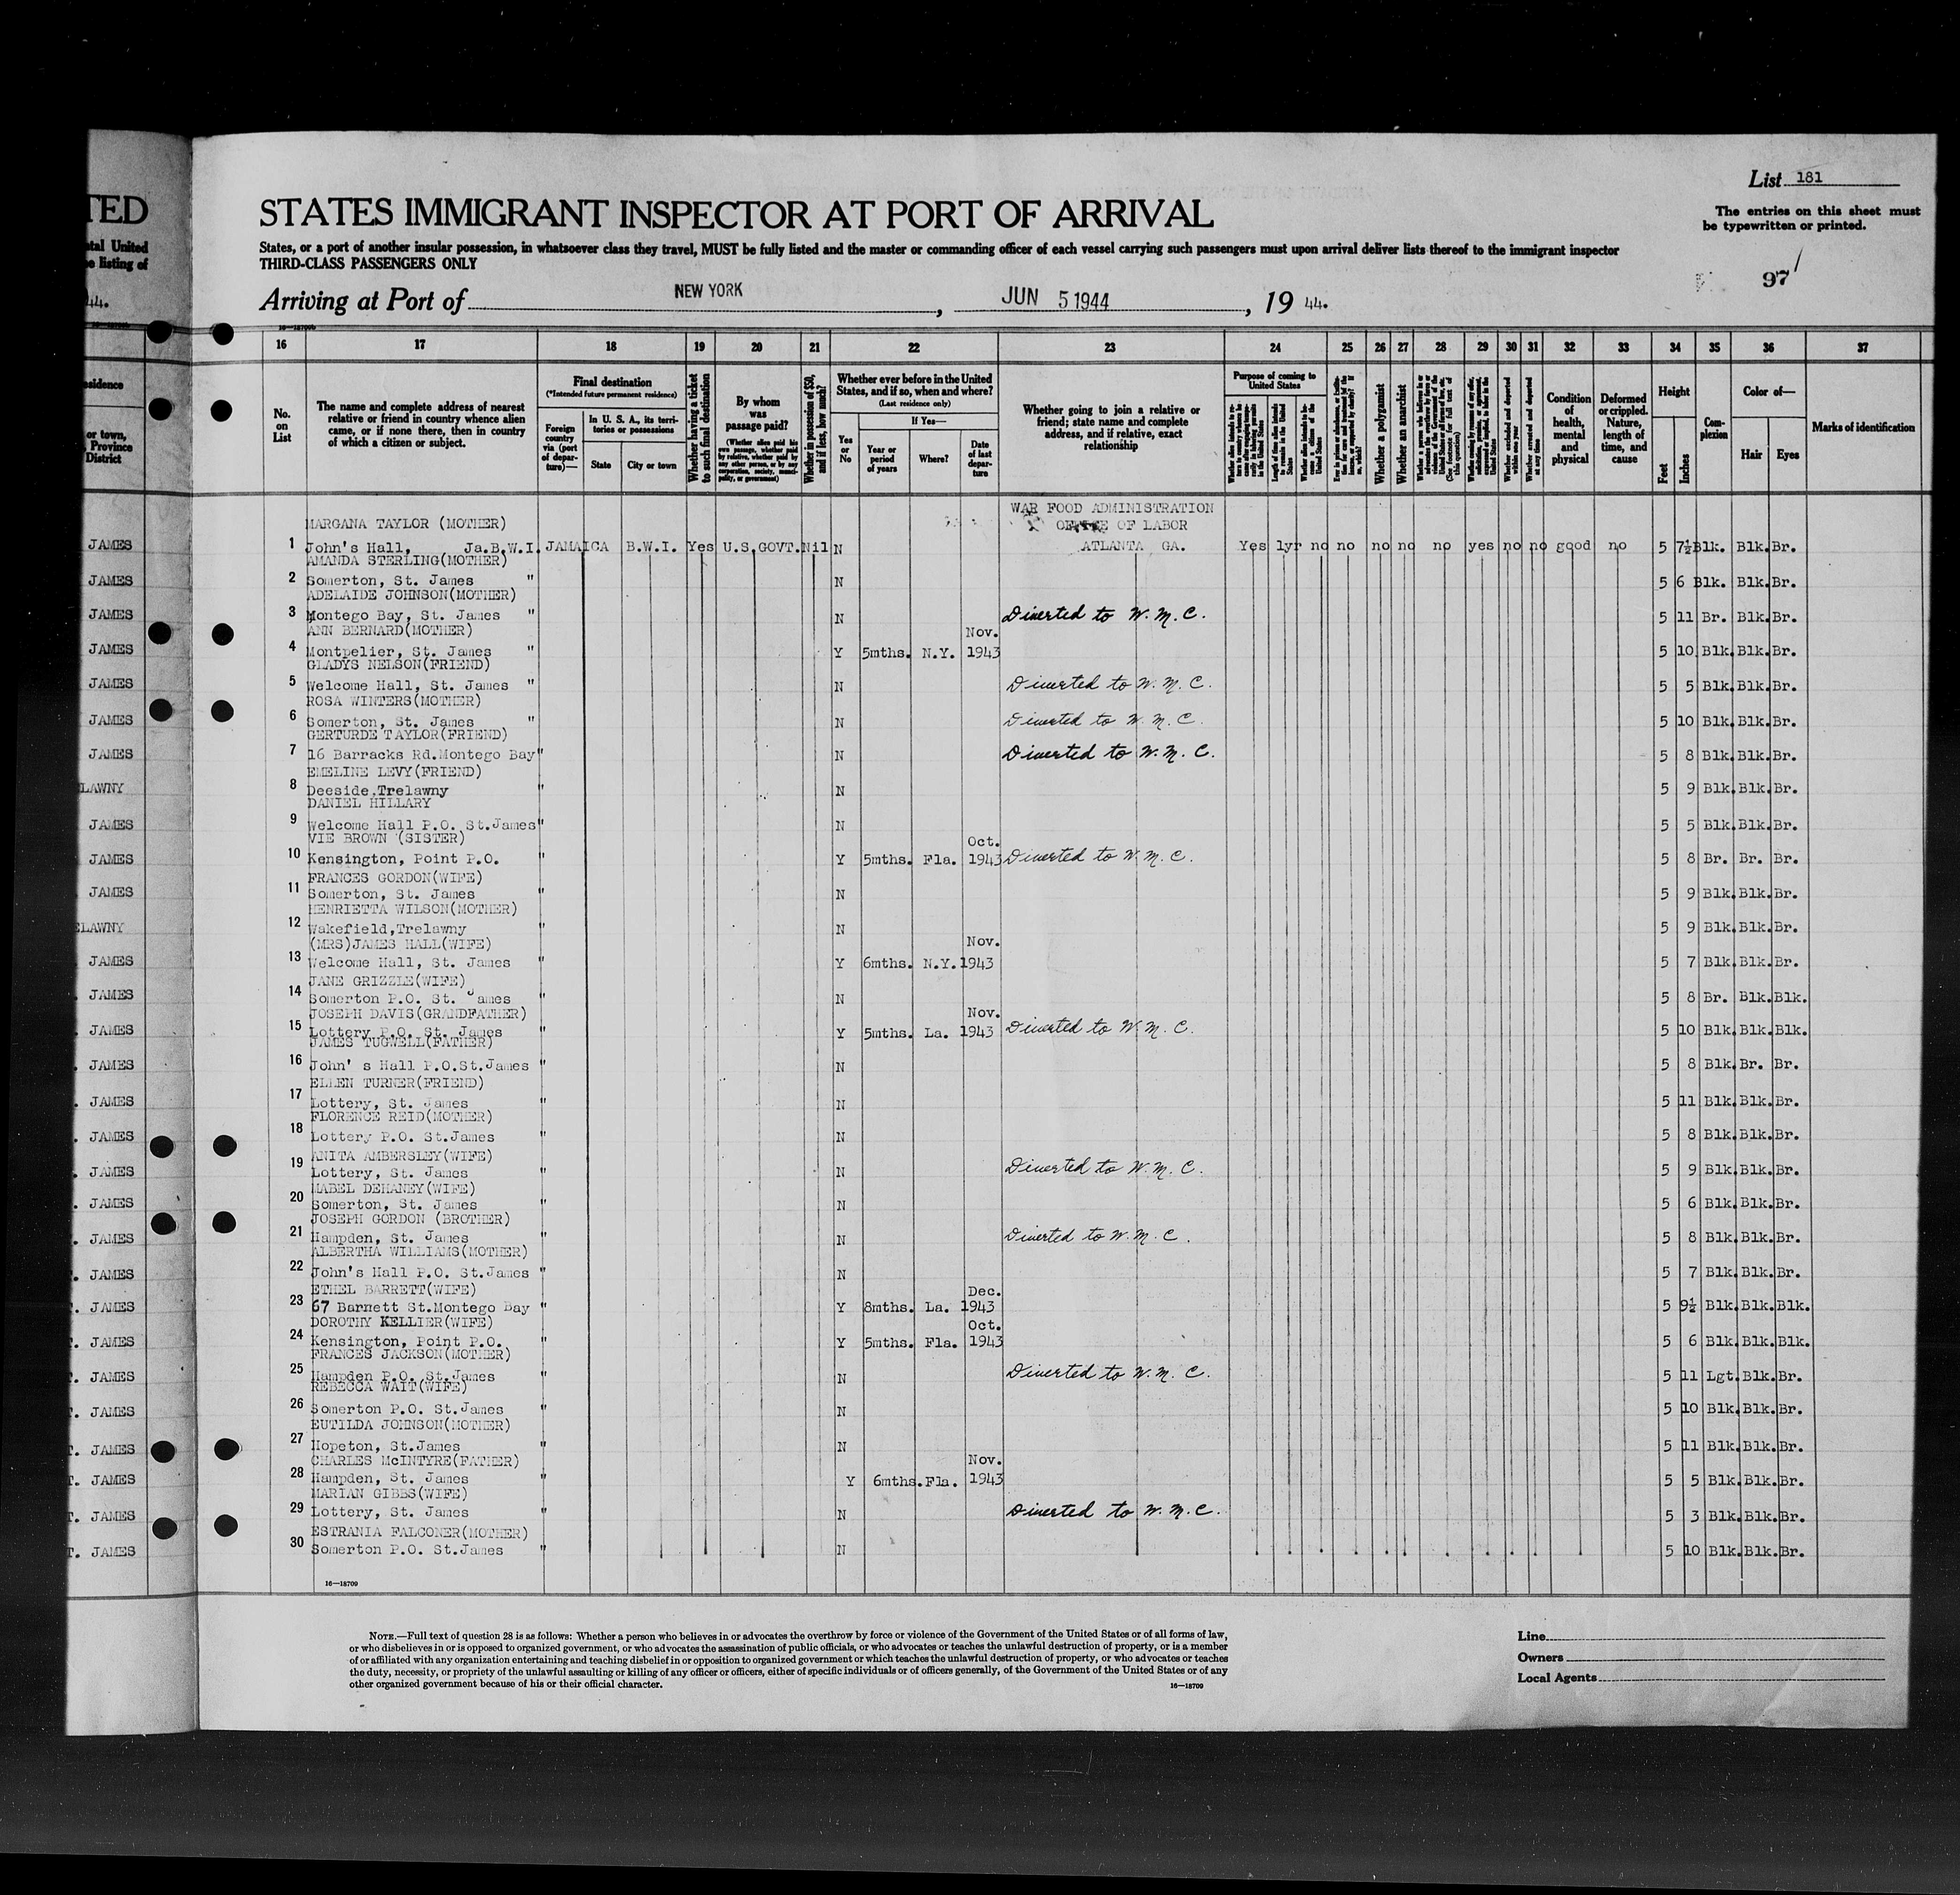 List 181
The entries on this sheet must
be typewritten or printed.
97
TED
STATES IMMIGRANT INSPECTOR AT PORT OF ARRIVAL
States, or a port of another insular possession, in whatsoever class they travel, MUST be fully listed and the master or commanding officer of each vessel carrying such passengers must upon arrival deliver lists thereof to the immigrant inspector
THIRD-CLASS PASSENGERS ONLY
Arriving at Port of NEW YORK, JUN 5 1944, 19 44.
16 17 18 19 20 21 22 23 24 25 26 27 28 29 30 31 32 33 34 35 36 37
No. on List
The name and complete address of nearest relative or friend in country whence alien came, or if none there, then in country of which a citizen or subject.
Final destination
(*Intended future permanent residence)
Foreign country via (port of departure)—
In U. S. A., its territories or possessions
State
City or town
Whether having a ticket to such final destination
By whom was passage paid?
(Whether alien paid his own passage, whether paid by relative, whether paid by any other person, or by any corporation, society, municipality, or government)
Whether in possession of $50, and if less, how much?
Whether ever before in the United States, and if so, when and where?
(Last residence only)
Yes or No
If Yes—
Year or period of years
Where?
Date of last departure
Whether going to join a relative or friend; state name and complete address, and if relative, exact relationship
Purpose of coming to United States
Whether a polygamist
Whether an anarchist
Condition of health, mental and physical
Deformed or crippled. Nature, length of time, and cause
Height
Feet
Inches
Complexion
Color of—
Hair
Eyes
Marks of identification
WAR FOOD ADMINISTRATION
OFFICE OF LABOR
MARGANA TAYLOR (MOTHER)
JAMES 1 John's Hall, Ja.B.W.I. JAMAICA B.W.I. Yes U.S.GOVT. Nil N ATLANTA GA. Yes 1yr no no no no no yes no no good no 5 7½ Blk. Blk. Br.
AMANDA STERLING(MOTHER)
JAMES 2 Somerton, St. James " N 5 6 Blk. Blk. Br.
ADELAIDE JOHNSON(MOTHER)
JAMES 3 Montego Bay, St. James " N Diverted to W. M. C. 5 11 Br. Blk. Br.
ANN BERNARD(MOTHER) Nov.
JAMES 4 Montpelier, St. James " Y 5mths. N.Y. 1943 5 10 Blk. Blk. Br.
GLADYS NELSON(FRIEND)
JAMES 5 Welcome Hall, St. James " N Diverted to W. M. C. 5 5 Blk. Blk. Br.
ROSA WINTERS(MOTHER)
JAMES 6 Somerton, St. James " N Diverted to W. M. C. 5 10 Blk. Blk. Br.
GERTURDE TAYLOR(FRIEND)
JAMES 7 16 Barracks Rd.Montego Bay " N Diverted to W. M. C. 5 8 Blk. Blk. Br.
EMELINE LEVY(FRIEND)
LAWNY 8 Deeside,Trelawny " N 5 9 Blk. Blk. Br.
DANIEL HILLARY
JAMES 9 Welcome Hall P.O. St.James " N 5 5 Blk. Blk. Br.
VIE BROWN (SISTER) Oct.
JAMES 10 Kensington, Point P.O. " Y 5mths. Fla. 1943 Diverted to W. M. C. 5 8 Br. Br. Br.
FRANCES GORDON(WIFE)
JAMES 11 Somerton, St. James " N 5 9 Blk. Blk. Br.
HENRIETTA WILSON(MOTHER)
ELAWNY 12 Wakefield,Trelawny " N 5 9 Blk. Blk. Br.
(MRS)JAMES HALL(WIFE) Nov.
JAMES 13 Welcome Hall, St. James " Y 6mths. N.Y. 1943 5 7 Blk. Blk. Br.
JANE GRIZZLE(WIFE)
JAMES 14 Somerton P.O. St. James " N 5 8 Br. Blk. Blk.
JOSEPH DAVIS(GRANDFATHER) Nov.
JAMES 15 Lottery P.O. St. James " Y 5mths. La. 1943 Diverted to W. M. C. 5 10 Blk. Blk. Blk.
JAMES TUGWELL(FATHER)
JAMES 16 John' s Hall P.O.St.James " N 5 8 Blk. Br. Br.
ELLEN TURNER(FRIEND)
JAMES 17 Lottery, St. James " N 5 11 Blk. Blk. Br.
FLORENCE REID(MOTHER)
JAMES 18 Lottery P.O. St.James " N 5 8 Blk. Blk. Br.
ANITA AMBERSLEY(WIFE)
JAMES 19 Lottery, St. James " N Diverted to W. M. C. 5 9 Blk. Blk. Br.
MABEL DEHANEY(WIFE)
JAMES 20 Somerton, St. James " N 5 6 Blk. Blk. Br.
JOSEPH GORDON (BROTHER)
JAMES 21 Hampden, St. James " N Diverted to W. M. C. 5 8 Blk. Blk. Br.
ALBERTHA WILLIAMS(MOTHER)
JAMES 22 John's Hall P.O. St.James " N 5 7 Blk. Blk. Br.
ETHEL BARRETT(WIFE) Dec.
JAMES 23 67 Barnett St.Montego Bay " Y 8mths. La. 1943 5 9½ Blk. Blk. Blk.
DOROTHY KELLIER(WIFE) Oct.
JAMES 24 Kensington, Point P.O. " Y 5mths. Fla. 1943 5 6 Blk. Blk. Blk.
FRANCES JACKSON(MOTHER)
JAMES 25 Hampden P.O. St.James " N Diverted to W. M. C. 5 11 Lgt. Blk. Br.
REBECCA WAIT(WIFE)
JAMES 26 Somerton P.O. St.James " N 5 10 Blk. Blk. Br.
EUTILDA JOHNSON(MOTHER)
JAMES 27 Hopeton, St.James " N 5 11 Blk. Blk. Br.
CHARLES McINTYRE(FATHER) Nov.
JAMES 28 Hampden, St. James " Y 6mths. Fla. 1943 5 5 Blk. Blk. Br.
MARIAN GIBBS(WIFE)
JAMES 29 Lottery, St. James " N Diverted to W. M. C. 5 3 Blk. Blk. Br.
ESTRANIA FALCONER(MOTHER)
JAMES 30 Somerton P.O. St.James " N 5 10 Blk. Blk. Br.
16—18709
NOTE.—Full text of question 28 is as follows: Whether a person who believes in or advocates the overthrow by force or violence of the Government of the United States or of all forms of law,
or who disbelieves in or is opposed to organized government, or who advocates the assassination of public officials, or who advocates or teaches the unlawful destruction of property, or is a member
of or affiliated with any organization entertaining and teaching disbelief in or opposition to organized government or which teaches the unlawful destruction of property, or who advocates or teaches
the duty, necessity, or propriety of the unlawful assaulting or killing of any officer or officers, either of specific individuals or of officers generally, of the Government of the United States or of any
other organized government because of his or their official character.
16—18709
Line
Owners
Local Agents